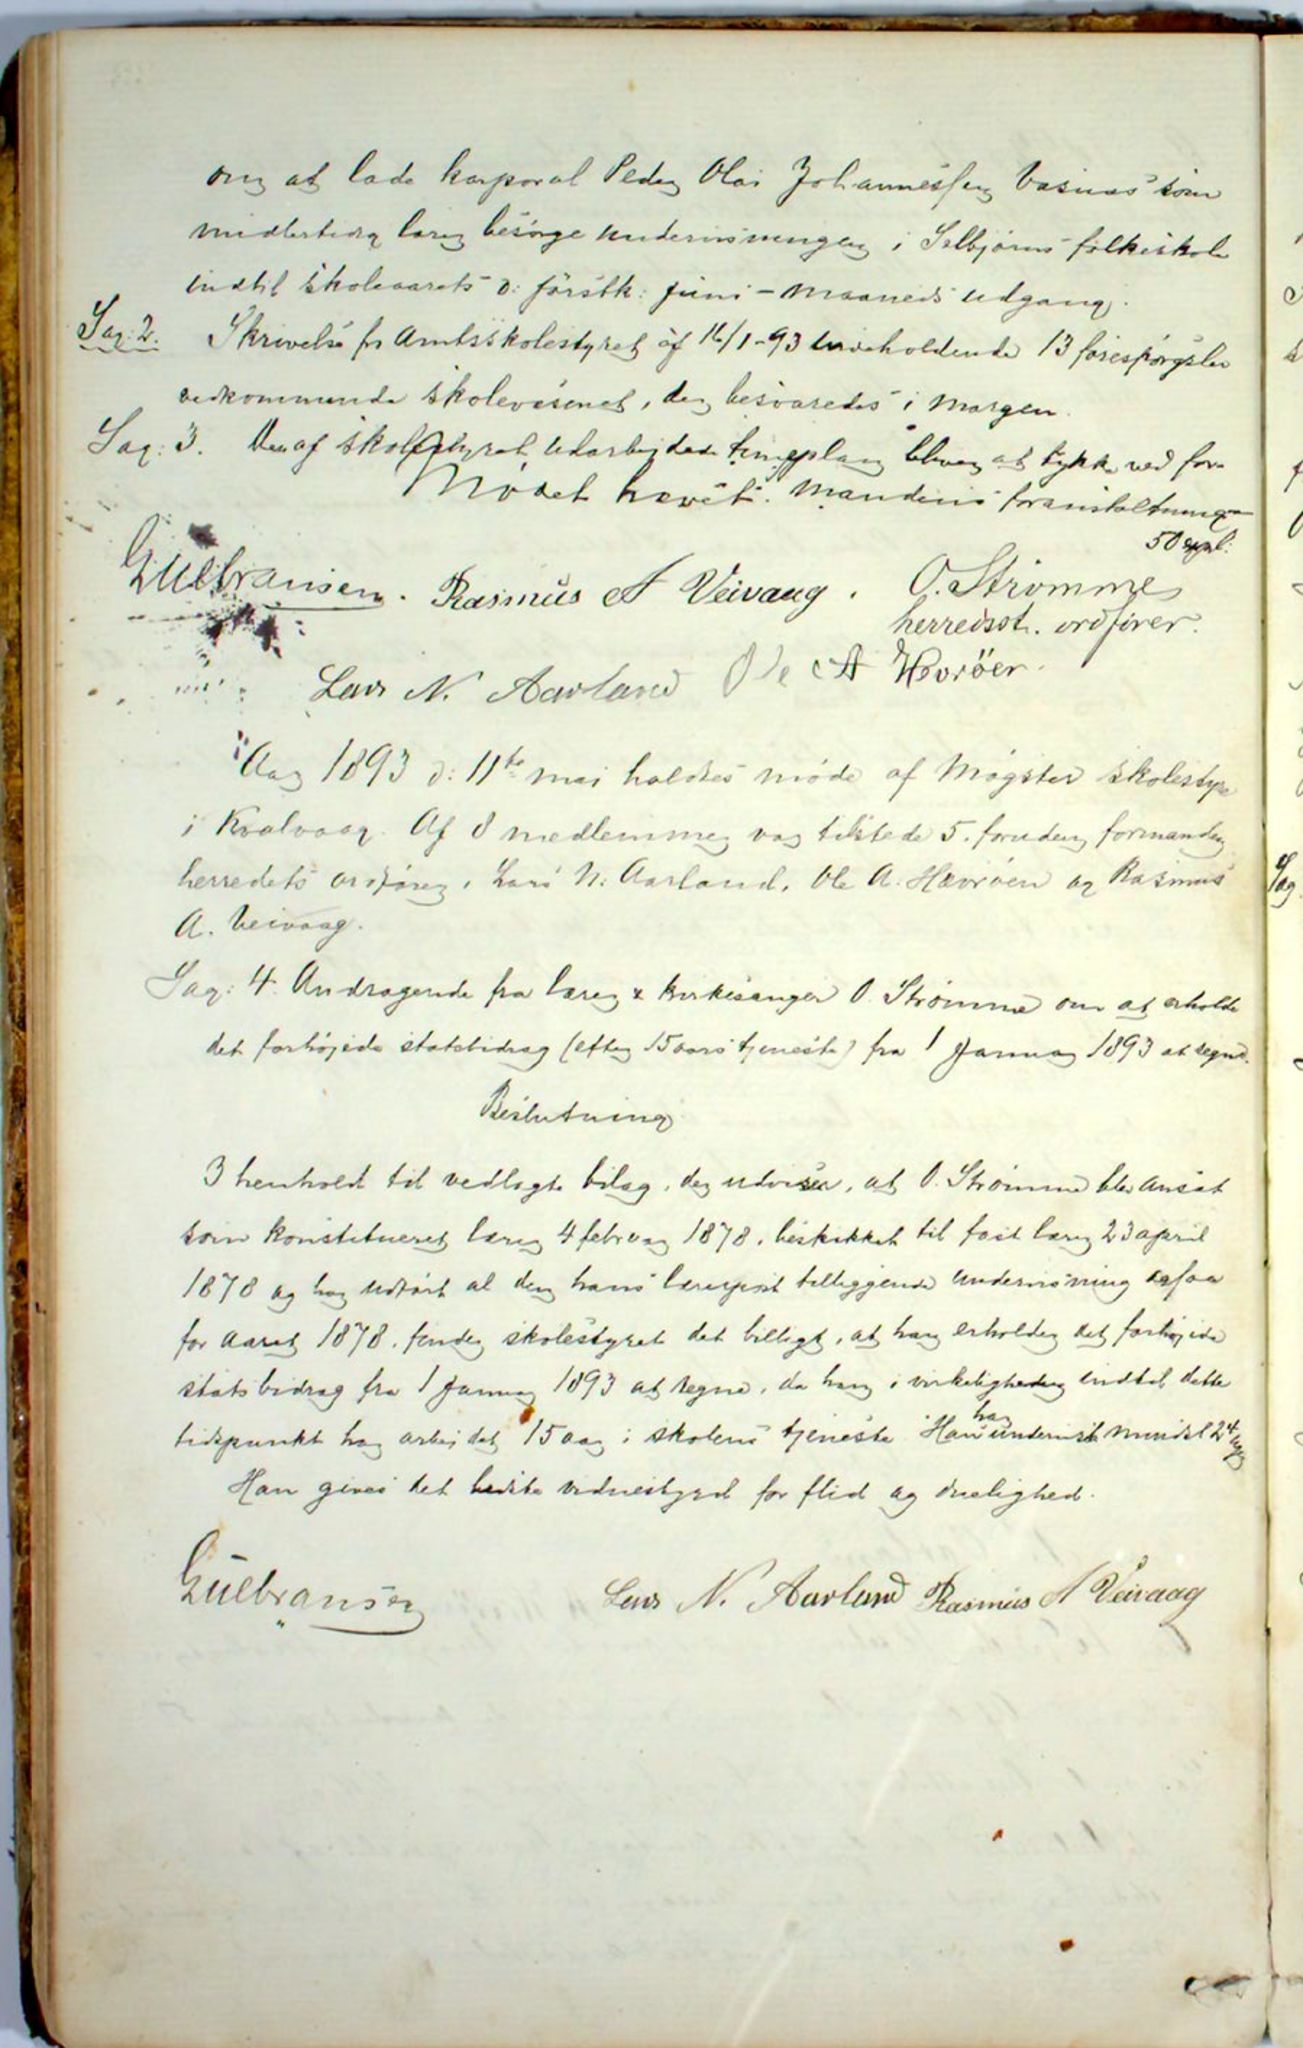 om at lade korporal Peder Olai Johannessen Vasnæs som
midlertidig lærer besørge undervisningen i Selbjørns folkeskole
indtil skoleaarets ɔ: førstk: juni-maaneds udgang.
Sag: 2. Skrivelse fr amtsskolestyret af 16/1-93 indeholdende 13 forespørgsler
vedkommende skolevæsenet, der besvaredes i margen.
Sag: 3. Den af skolestyret udarbejdede timeplan bliver at trykke ved for-
mandens foranstaltning
50 expl:
Mødet hævet.
Gulbransen. Rasmus A Veivaag. O. Strømme
herredsst. ordfører.
Lars N. Aarland Ole A Hevrøer.
Aar 1893 d: 11te mai holdtes møde af Møgster skolestyre
i Kvalvaag. Af 8 medlemmer var tilstede 5. foruden formanden
herredets ordfører, Lars N. Aarland, Ole A. Hævrøen og Rasmus
A. Veivaag.
Sag: 4. Andragende fra lærer & kirkesanger O. Strømme om at erholde
det forhøjede statsbidrag (efter 15 aars tjeneste) fra 1 Januar 1893 at regne.
Beslutning
I henhold til vedlagte bilag, der udviser, at O. Strømme blev ansat
som konstitueret lærer 4 februar 1878, beskikket til fast lærer 23 april
1878 og har udført al den hans lærerpost tilliggende undervisning ogsaa
for aaret 1878, finder skolestyret det billigt, at han erholder det forhøjede
statsbidrag fra 1 Januar 1893 at regne, da han i virkeligheden indtil dette
tidspunkt har arbejdet 15 aar i skolens tjeneste. Han har undervist mindst 24 uger
Han gives det bedste vidnesbyrd for flid og duelighed.
Gulbransen Lars N. Aarland Rasmus A Veivaag
Sag